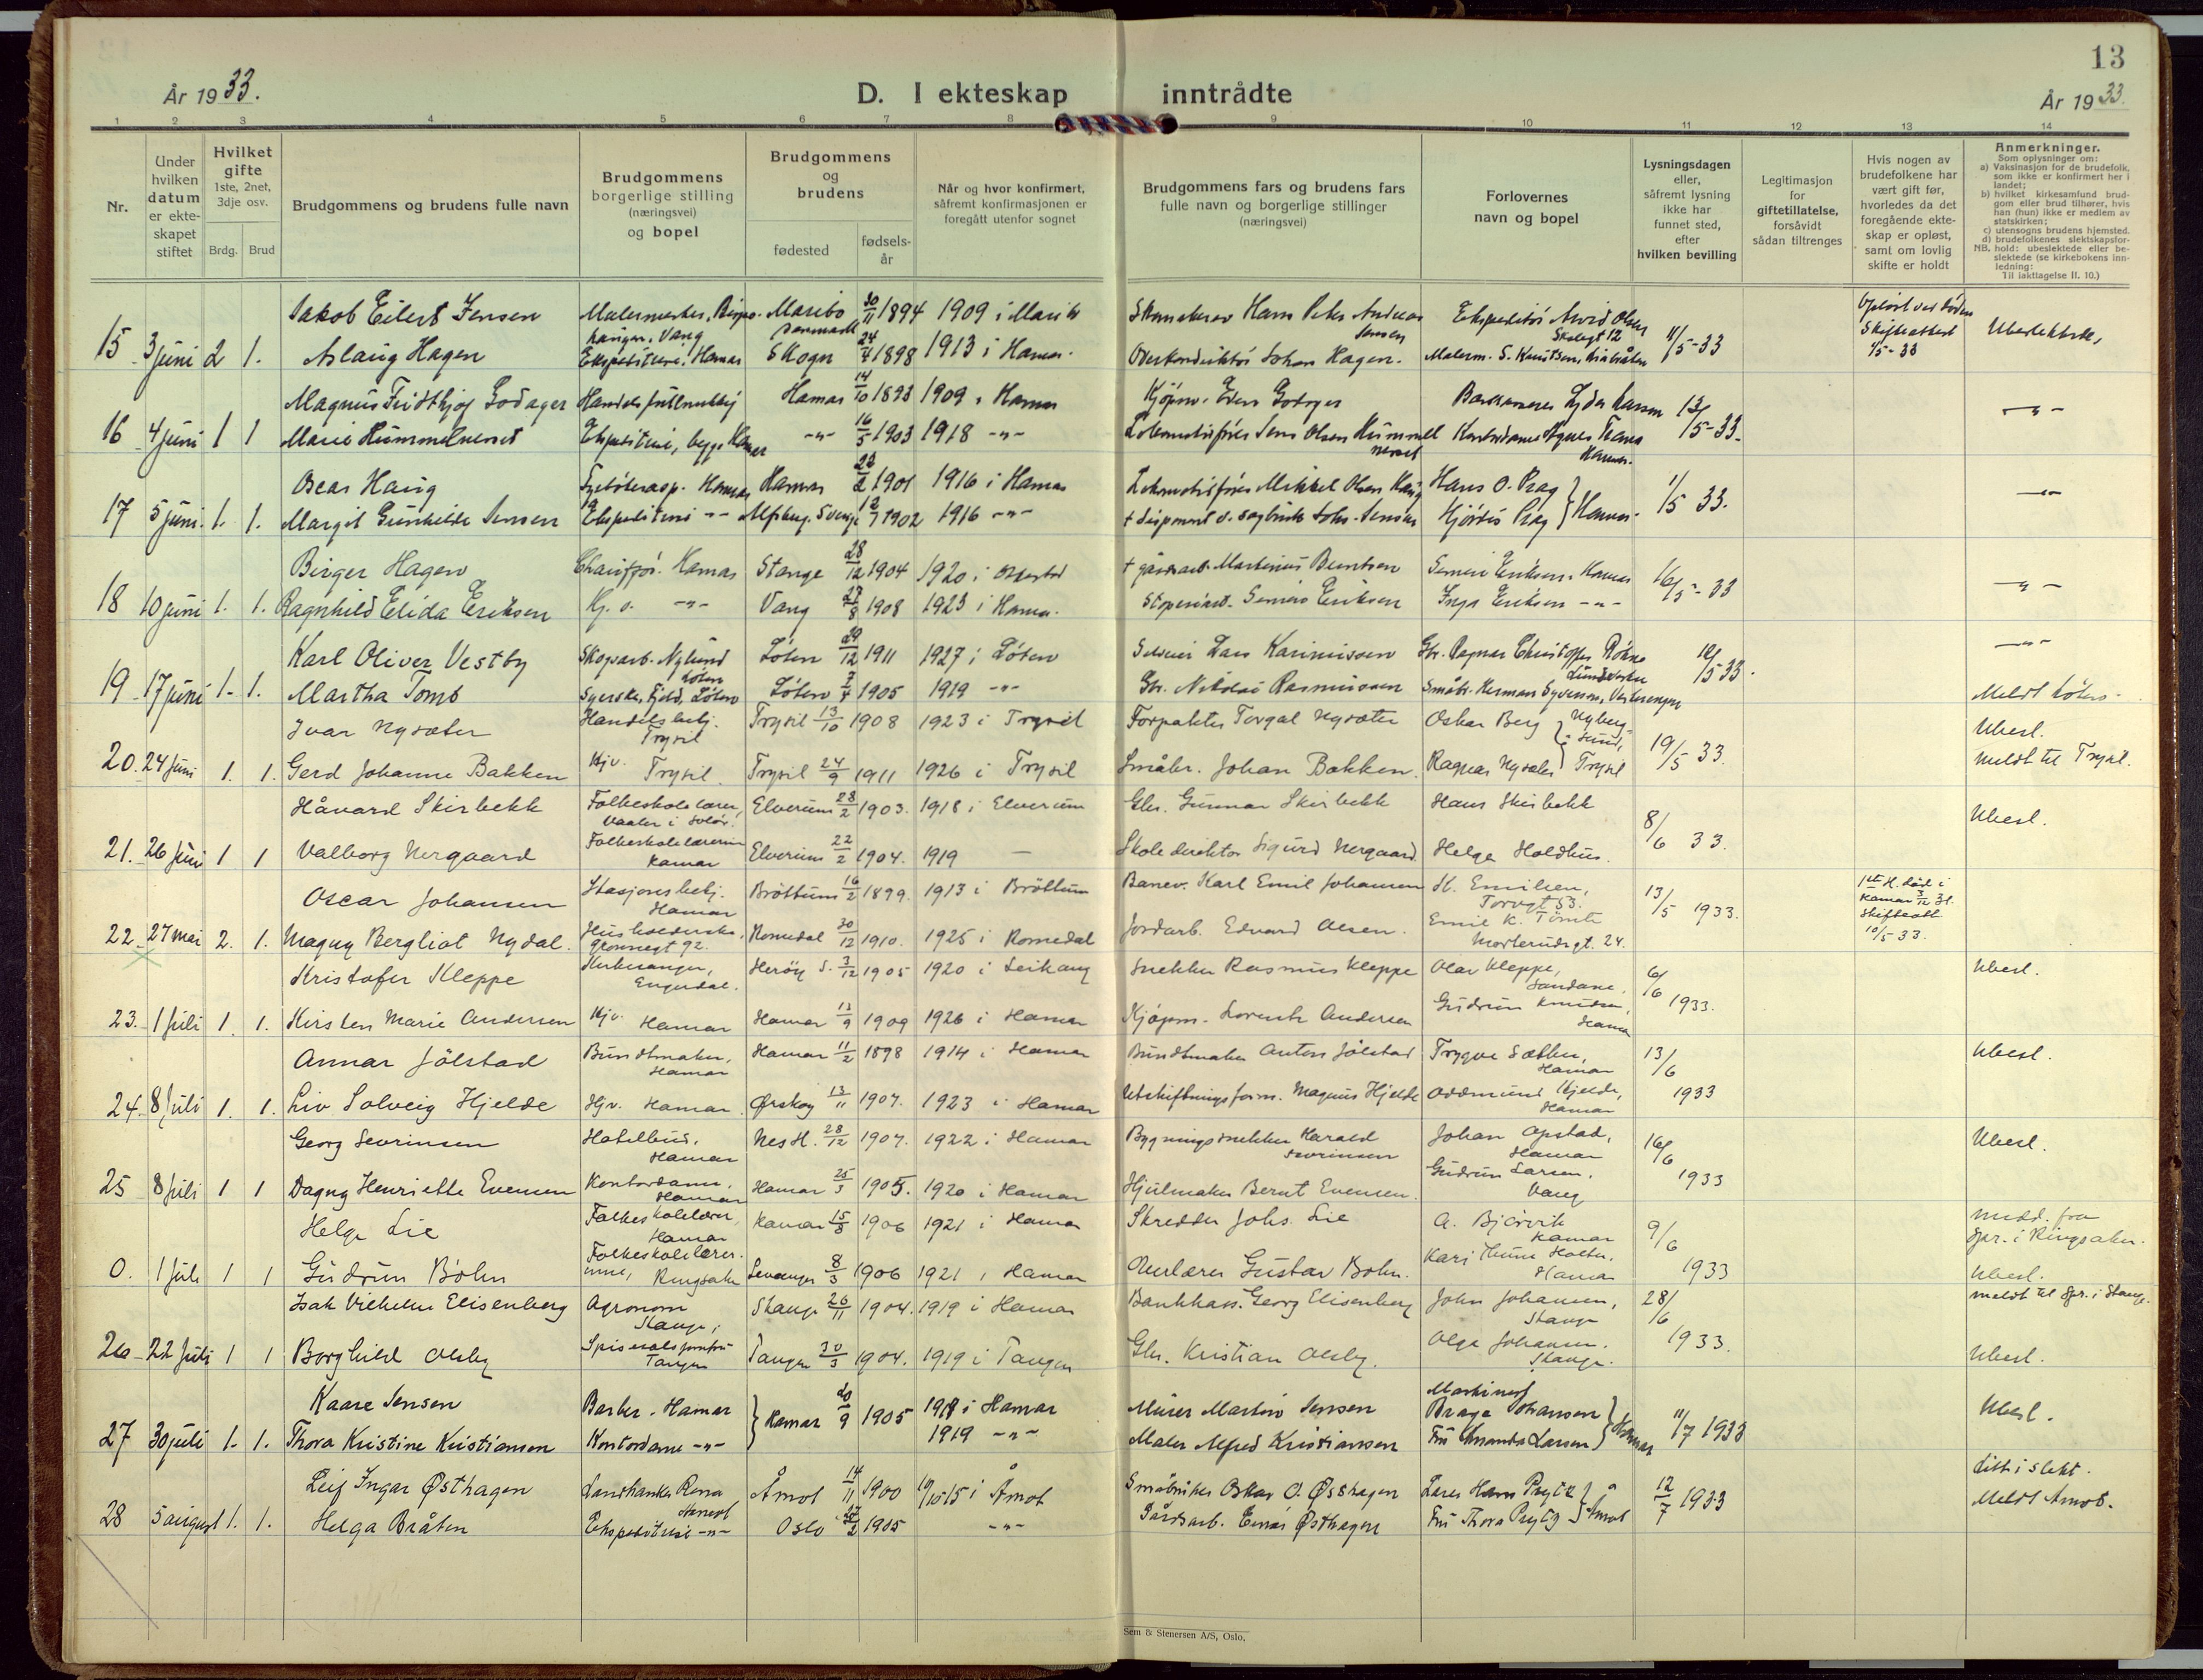 13
År 1933.
D. I ekteskap inntrådte
År 1933.
1 2 3 4 5 6 7 8 9 10 11 12 13 14
Nr.
Under hvilken datum er ekteskapet stiftet
Hvilket gifte 1ste, 2net, 3dje osv.
Brdg. Brud
Brudgommens og brudens fulle navn
Brudgommens borgerlige stilling (næringsvei) og bopel
Brudgommens og brudens
fødested
fødselsår
Når og hvor konfirmert, såfremt konfirmasjonen er foregått utenfor sognet
Brudgommens fars og brudens fars fulle navn og borgerlige stillinger (næringsvei)
Forlovernes navn og bopel
Lysningsdagen eller, såfremt lysning ikke har funnet sted, efter hvilken bevilling
Legitimasjon for giftetillatelse, forsåvidt sådan tiltrenges
Hvis nogen av brudefolkene har vært gift før, hvorledes da det foregående ekteskap er opløst, samt om lovlig skifte er holdt
Anmerkninger.
Som oplysninger om:
a) Vaksinasjon for de brudefolk, som ikke er konfirmert her i landet;
b) hvilket kirkesamfund brudgom eller brud tilhører, hvis han (hun) ikke er medlem av statskirken;
c) utensogns brudens hjemsted.
d) brudefolkenes slektskapsforhold: ubeslektede eller beslektede (se kirkebokens innledning:
NB. Til iakttagelse II. 10.)
Jakob Eilert Jensen Malermester, Maribo Danmark 30/11 1894 1909 i Maribo Hans Peter Andreas Jensen Ekspeditør Arvid Olsen
15 3 juni 2 1. Aslaug Hagen Ekspeditrise, Hamar Skogn 24/7 1898 1913 i Hamar. Overkonduktør Johan Hagen. 11/5-33 Ubeslektede,
Magnus Fridthjof Godager Handelsfullmektig Hamar 14/10 1893 1909 i Hamar Kjøpm. Even Godager 13/5-33.
16 4 juni 1 1 Marie Hummelneset Ekspeditrise, Hamar -"- 16/5 1903 1918 -"- Lokomotivfører Jens Olsen Hummelneset Kontordame Agnes Hamar. -"-
Oscar Haug Hamar Hamar 1901 1916 i Hamar Lokomotivfører Mikkel Olsen Haug Hans O. Prag
17 5 juni. 1. 1. Margit Gunhilde Jensen Ekspeditrise -"- Sverige 1902 1916 -"- Hjørdis Prag } Hamar. 1/5 33. -"-
Birger Hagen Chauffør. Hamar Stange 28/12 1904 1920 i Martinius Berntsen Eriksen. Hamar 16/5-33
18 10 juni 1. 1. Ragnhild Elida Eriksen Hj. v. -"- Vang 27/8 1908 1923 i Hamar. Eriksen Inga Eriksen -"- -"-
Karl Oliver Vestby Skogsarb. Nylund Løten Løten 29/12 1911 1927 i Løten Selveier Lars Karinisson Gbr. Ragnar Christoffer -"-
19 17 juni 1. 1. Martha Tomb Syerske, Fjeld, Løten Løten 1905 1919 -"- Gbr. Nikolai Rasmussen Småbr. Herman Syversen, 18/5 33. Meldt Løten.
Ivar Nysæter Handelsbetj. Trysil Trysil 13/10 1908 1923 i Trysil Forpakter Torgal Nysæter Oskar Berg, Nybergsund, Ubesl.
20. 24 juni 1. 1. Gerd Johanne Bakken Hjv. Trysil. Trysil 24/9 1911 1926 i Trysil Småbr. Johan Bakken. Ragnar Nysæter } Trysil 19/5 33. Meldt til Trysil.
Håvard Skirbekk Folkeskolelærer, Vaaler i Solør. Elverum 28/2 1903. 1918 i Elverum Gbr. Gunnar Skirbekk Hans Skirbekk Ubesl.
21. 26 juni 1 1 Valborg Nergaard Folkeskolelærerinne Hamar Elverum 22/2 1904. 1919 — Skoledirektør Sigurd Nergaard. Helge Holdhus. 8/6 33.
Oscar Johansen Stasjonsbetj. Hamar Brøttum 16/2 1899. 1913 i Brøttum Banev. Karl Emil Johansen H. Emilsen, Torvgt 53. 13/5 1933. 1ste H. død i Hamar 3/12 31. Skifteatt 10/5 33.
22 27 mai 2. 1. Magny Bergliot Nydal. Husholderske, Grønnegt 92. Romedal 30/12 1910. 1925 i Romedal Jordarb. Edvard Olsen. Emil K. Tømte Morterudsgt. 24.
Kristofer Kleppe Kirkesanger, Engerdal. Herøy S. 3/12 1905 1920 i Leikang Snekker Rasmus Kleppe Olav Kleppe, Sandane. Ubesl.
23. 1 juli 1. 1. Kirsten Marie Andersen Hjv. Hamar Hamar 13/9 1909 1926 i Hamar Kjøpm. Lorentz Andersen Gudrun Knudsen, Hamar 6/6 1933.
Annar Jølstad Buntmaker, Hamar Hamar 11/2 1898 1914 i Hamar Buntmaker Anton Jølstad Trygve Sæther, Hamar Ubesl.
24. 8 juli 1. 1. Liv Solveig Hjelde Hjv. Hamar. Ørskog 13/11 1907. 1923 i Hamar Utskiftningsform. Magnus Hjelde Oddmund Hjelde, Hamar 13/6 1933
Georg Sevrinsen Hotellbud, Hamar Nes H. 28/12 1907. 1922 i Hamar Bygningssnekker Harald Sevrinsen Johan Opstad, Hamar Ubesl.
25 8 juli 1 1 Dagny Henriette Evensen Kontordame, Hamar Hamar 25/3 1905. 1920 i Hamar Hjulmaker Bernt Evensen. Gudrun Larsen, Vang 16/6 1933
Helge Lie Folkeskolelærer, Hamar Hamar 15/8 1906 1921 i Hamar Skredder Johs. Lie A. Bjørvik Hamar Medd. fra Spr. i Ringsaker.
0. 1 juli 1 1 Gudrun Bohn Folkeskolelærerinne, Ringsaker Levanger 8/3 1906 1921 i Hamar Gustav Bohn. Hamar 9/6 1933 Ubesl.
Isak Vilhelm Elisenberg Agronom Stange, Stange 26/11 1904. 1919 i Hamar Bankkass. Georg Elisenberg John Johansen, Stange Meldt til Spr. i Stange.
26 22 juli 1 1 Borghild Olsby Tangen Tangen 30/3 1904. 1919 i Tangen Gbr. Kristian Olsby. Olga Johansen. Stange. 28/6 1933. Ubesl.
Kaare Jensen Barber. Hamar } Hamar 1905 i Hamar Murer Martin Jensen Maskinist Brage Johansen } Hamar Ubesl.
27 30 juli 1. 1. Thora Kristine Kristiansen Kontordame -"- 1919 -"- Maler Alfred Kristiansen Fru Amanda Larsen 11/7 1933
Leif Ingar Østhagen Landhandler Rena Åmot 14/11 1900 15 i Åmot Småbruker Oskar O. Østhagen Lærer Hans Prytz } Åmot Litt i slekt.
28 5 august 1. 1. Helga Bråten Ekspeditrise -"- Oslo 1905 -"- Gårdsarb. Einar Østhagen Fru Thora Prytz 12/7 1933 Meldt Åmot.
Sem & Stenersen A/S, Oslo,